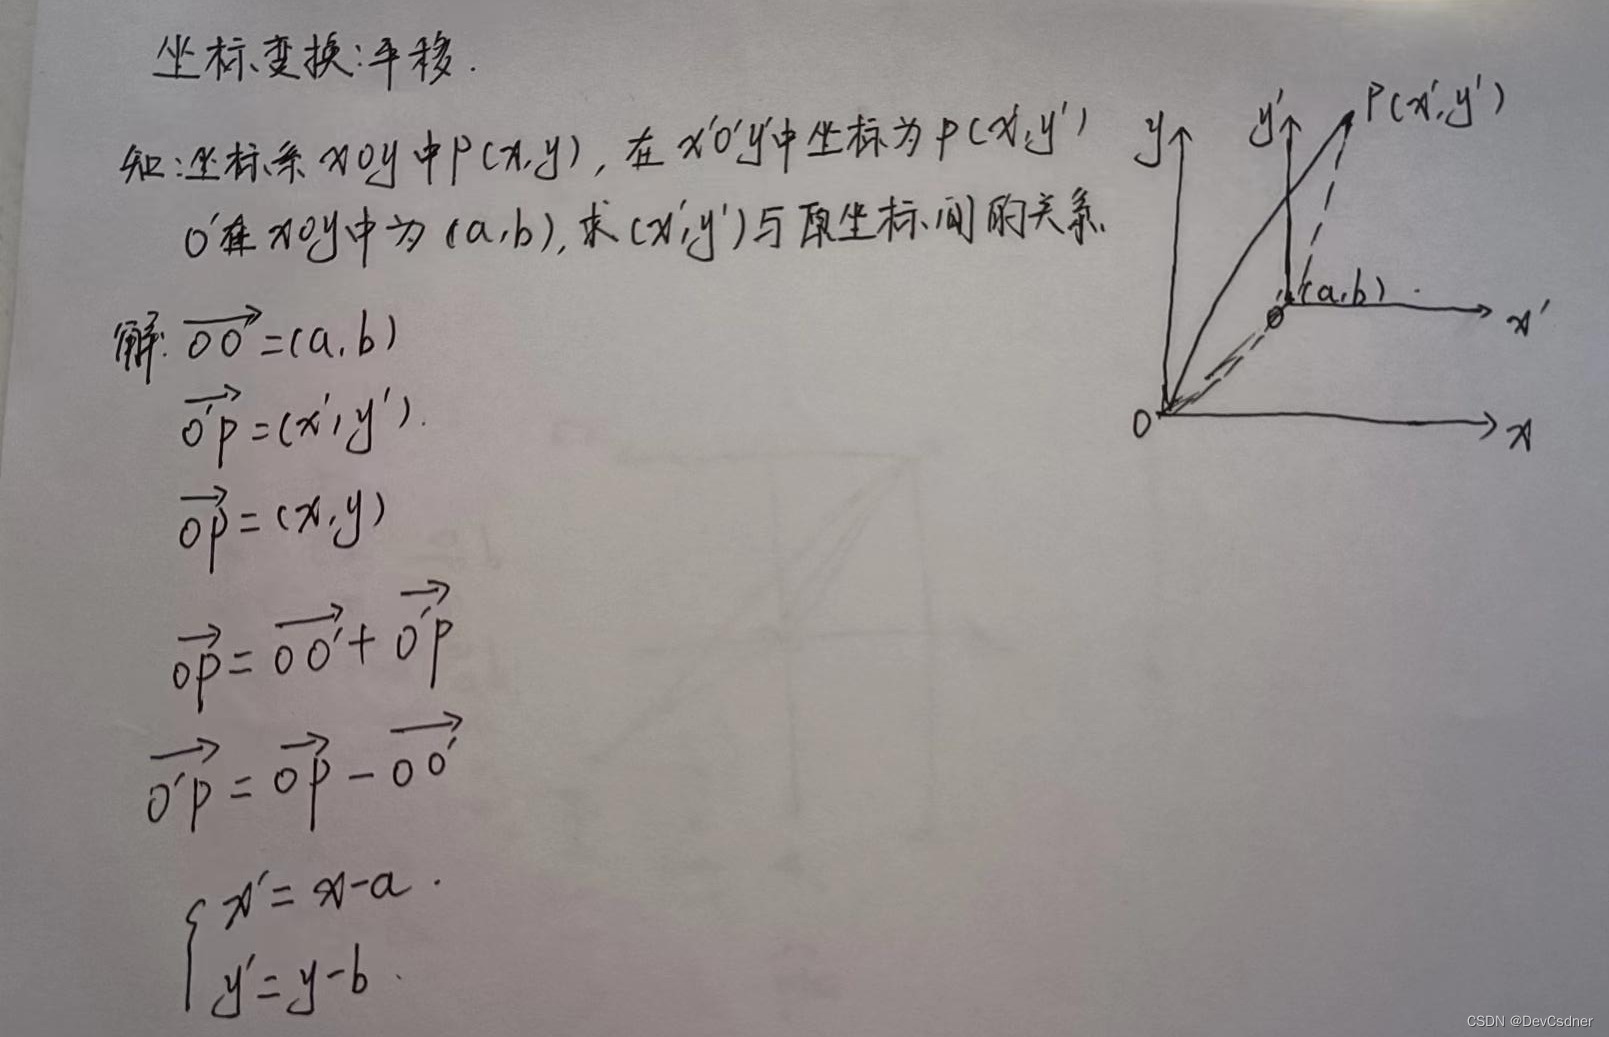 坐标变换:平移.
知:坐标系xOy中P(x,y),在x'O'y'中坐标为P(x',y')
O'在xOy中为(a,b),求(x',y')与原坐标间的关系
解:OO'=(a,b)
O'P=(x',y').
OP=(x,y)
OP=OO'+O'P
O'P=OP-OO'
x'=x-a.
y'=y-b.
y
y'
P(x',y')
(a,b).
x'
O
x
CSDN @DevCsdner